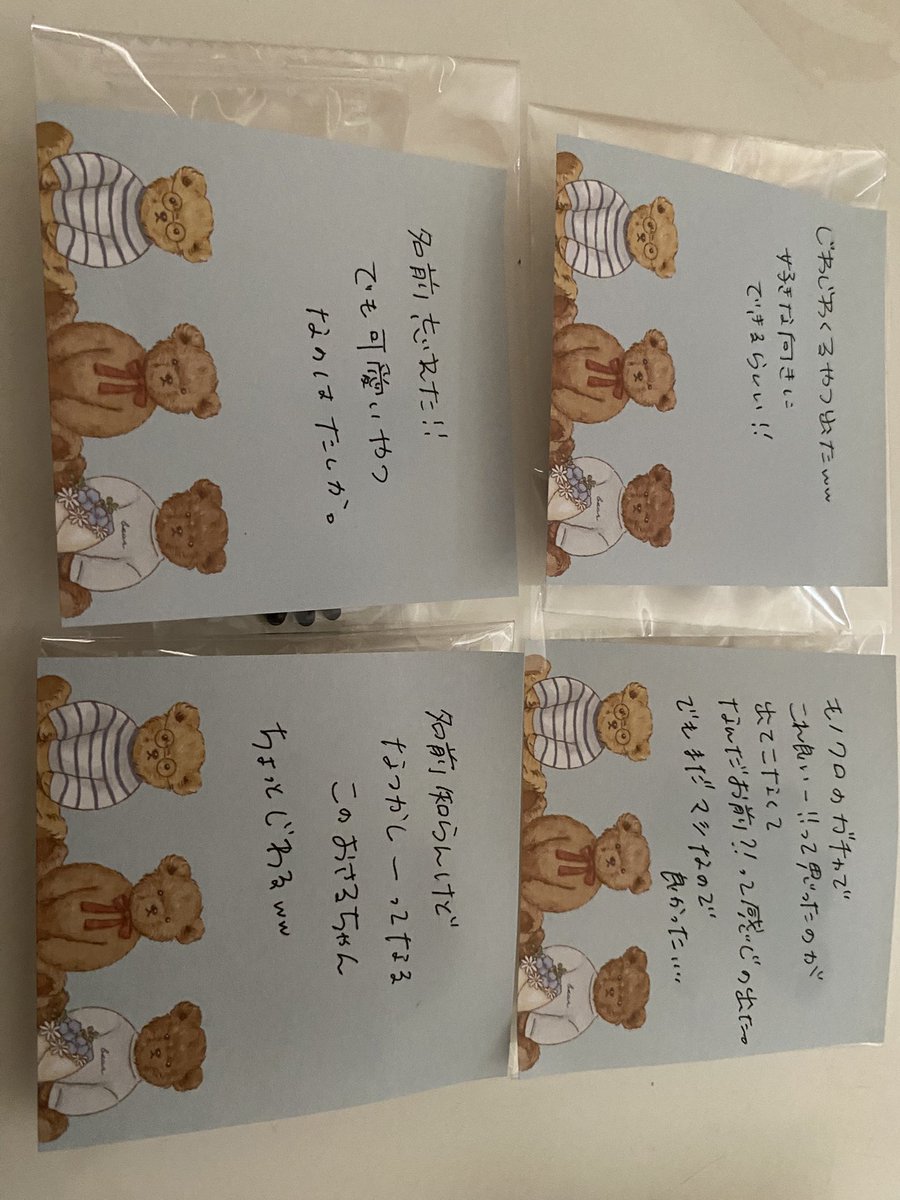 じわじわくるやつ出たww
好きな向きに
できるらしい!!
bear
モノクロのガチャで
これ良いー!!って思ったのが
出てこなくて
なんだお前?!って感じの出た。
でもまだマシなので
良かった……
bear
名前忘れた!!
でも可愛いやつ
なのはたしか。
bear
名前知らんけど
なつかしーってなる
このおさるちゃん
ちょっとじわるww
bear